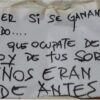 ER SI SE GANAN
DO....
QUE OCUPATE DE
Y DE TUS SOR
ÑOS ERAN
DE ANTES